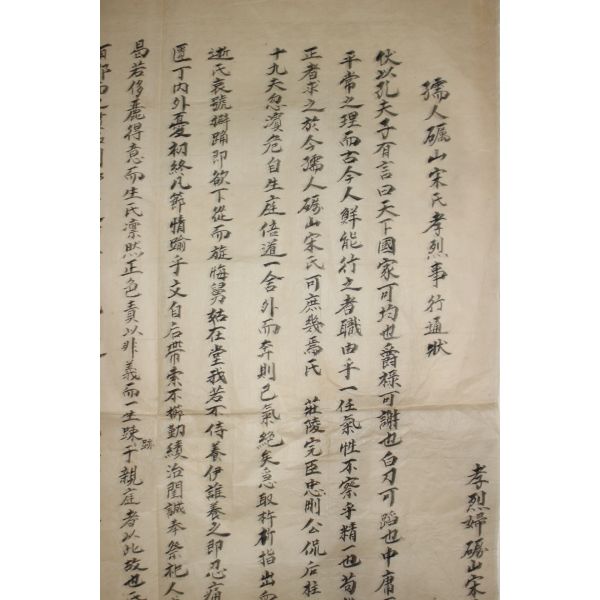 孝烈婦礪山宋
孺人礪山宋氏孝烈事行通狀
伏以孔夫子有言曰天下國家可均也爵祿可謝也白刃可蹈也中庸
平常之理而古今人鮮能行之者職由乎一任氣性不察乎精一也苟
正者求之於今孺人礪山宋氏可庶幾焉氏 莊陵完臣忠則公侃后
十九夫忽濱危自生庭倍道一舍外而奔則已氣絶矣急取杵斫指出
逝氏哀號擗踊即欲下從而旋悔舅姑在堂我若不侍養伊誰養之即忍痛
匪丁內外憂初終凡節情踰乎文自后帶索不櫛勤績治閨誠奉祭祀人
曷若侈麗得意而生氏凜然正色責以非義而一生踈于親庭者以此故也
跡